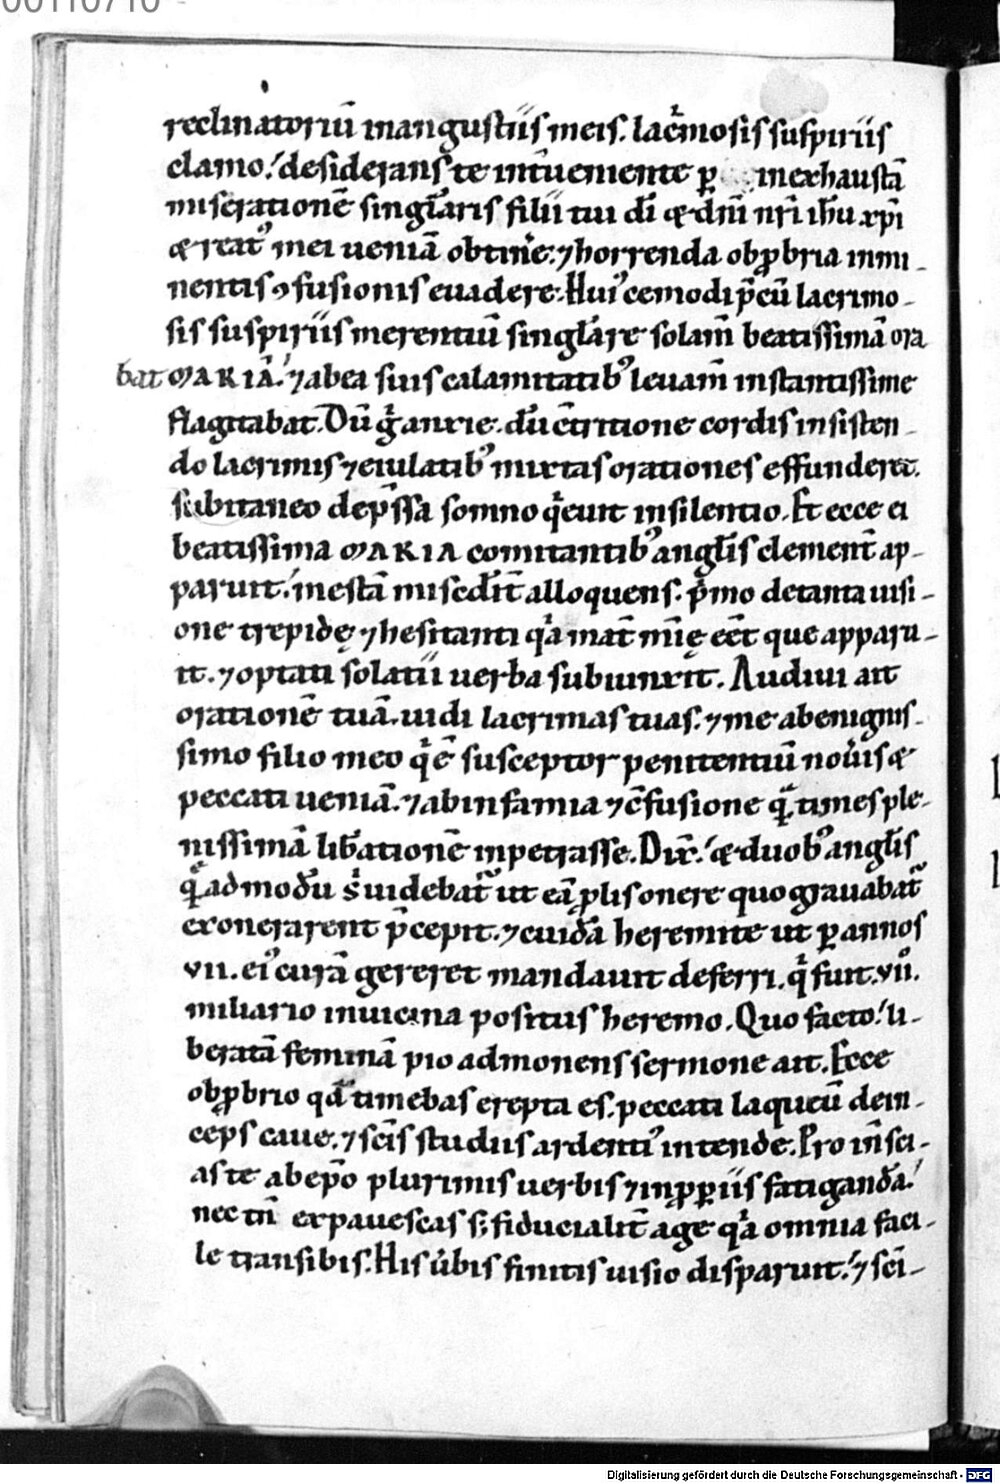 00110710
reclinatoriū inangustiis meis. lacͥmosis suspiriis
clamo.' desiderans te int̄ueniente p̱ inexhaustā
miserationē singl̄aris filii tui dī & dn̄i nr̄i ih̄u xp̄i
& reatꝰ mei ueniā obtin̄e: ⁊ horrenda obꝓbria inmi-
nentis ꝯfusionis euadere: Huiꝰcemodi p̄cū lacrimo-
sis suspiriis merentiū singl̄are solam̄ beatissimā ora
bat MARIĀ.' ⁊ abea suis calamitatibꝰ leuam̄ instantissime
flagitabat. Dū gͣ anxie. dū cͦtritione cordis insisten-
do lacrimis ⁊ eiulatibꝰ mixtas orationes effunderet.
subitaneo dep̄ssa somno qͥeuit insilentio. Et ecce ei
beatissima MARIA comitantibꝰ angl̄is clement̄ ap-
paruit.' mestā misc̄dit̄ alloquens. pͥmo detanta uisi-
one trepidę ⁊ hesitanti qͣ mat̄ mīę eēt que apparu-
it. ⁊ optati solatii uerba subiunxit. Audiui ait
orationē tuā. uidi lacrimas tuas. ⁊ me abenignis-
simo filio meo qͥ ē susceptor penitentiū nou̓is &
peccati ueniā. ⁊ abinfamia ⁊ cͦfusione qͣ times ple-
nissimā lib̄ationē inpetrasse. Dix̄.' & duobꝰ angl̄is
qͥ admodū sͥ uidebat᷑ ut eā ꝓlis onere quo grauabat᷑
exonerarent p̄cepit. ⁊ cuidā heremite ut p̱ annos
vii. eiꝰ curā gereret mandauit deferri. qͥ fuit. viiͦ.
miliario inuicina positus heremo. Quo facto.' li-
beratā feminā pio admonens sermone ait. Ecce
obꝓbrio qd̄ timebas erepta es. peccati laqueū dein-
ceps caue. ⁊ sc̄is studiis ardentiꝰ intende. Pro in̄ sci-
as te abep̄o plurimis uerbis ⁊ inꝓp̱iis fatigandā.'
nec tn̄ expauescas sꝫ fiducialit̄ age qͣ omnia faci-
le transibis. His ūbis finitis uisio disparuit.' ⁊ sc̄i-
Digitalisierung gefördert durch die Deutsche Forschungsgemeinschaft - DFG